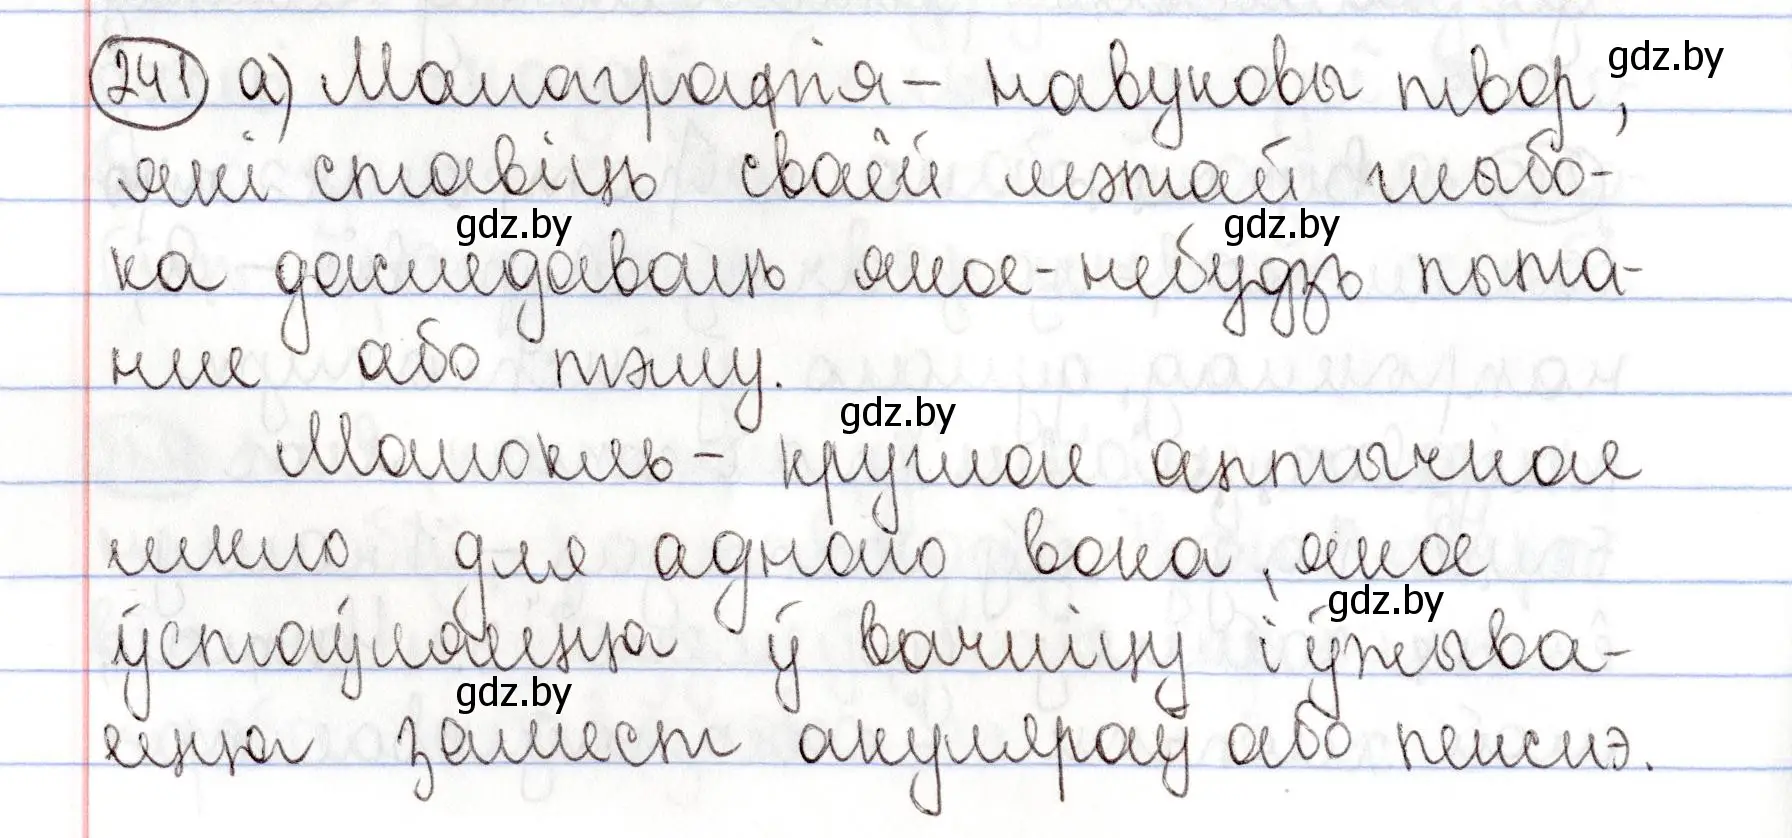 241 а) Манаграфія – навуковы твор,
gdz.by
які ставіць сваёй мэтай глыбо-
gdz.by gdz.by
ка даследаваць якое-небудзь пыта-
нне або тэму.
gdz.by
Манокль – круглае аптычнае
шкло для аднаго вока, якое
gdz.by
ўстаўляецца ў вачніцу і ўжыва-
gdz.by
ецца замест акуляраў або пенснэ.